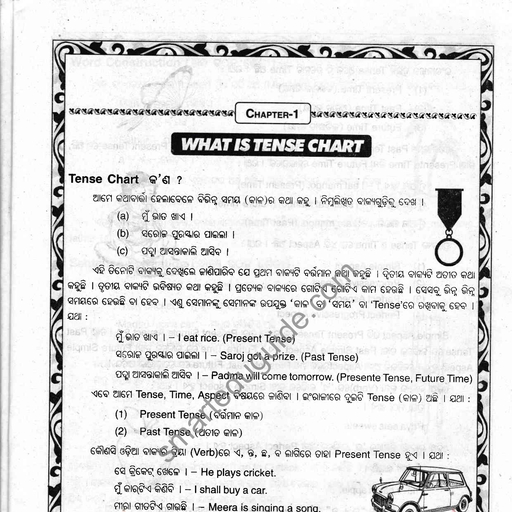 CHAPTER-1
WHAT IS TENSE CHART
Tense Chart କ'ଣ ?
ଆମେ କଥାବାର୍ତ୍ତା ହେଲାବେଳେ ବିଭିନ୍ନ ସମୟ (କାଳ)ର କଥା କହୁ । ନିମ୍ନଲିଖିତ ବାକ୍ୟଗୁଡ଼ିକୁ ଦେଖ ।
(a) ମୁଁ ଭାତ ଖାଏ ।
(b) ସରୋଜ ପୁରସ୍କାର ପାଇଲା ।
(c) ପଦ୍ମା ଆସନ୍ତାକାଲି ଆସିବ ।
ଏହି ତିନୋଟି ବାକ୍ୟକୁ ଦେଖିଲେ ଜାଣିପାରିବ ଯେ ପ୍ରଥମ ବାକ୍ୟଟି ବର୍ତ୍ତମାନ କଥା କହୁଛି । ଦ୍ୱିତୀୟ ବାକ୍ୟଟି ଅତୀତ କଥା
କହୁଛି । ତୃତୀୟ ବାକ୍ୟଟି ଭବିଷ୍ୟତ କଥା କହୁଛି । ପ୍ରତ୍ୟେକ ବାକ୍ୟରେ ଗୋଟିଏ ଗୋଟିଏ କାମ ହେଉଛି । ସେସବୁ ଭିନ୍ନ ଭିନ୍ନ
ସମୟରେ ହେଉଛି ବା ହେବ । ଏଣୁ ସେମାନଙ୍କୁ ସେମାନଙ୍କ ଉପଯୁକ୍ତ 'କାଳ' ବା 'ସମୟ' ବା 'Tense'ରେ ରଖିବାକୁ ହେବ ।
ଯଥା :
ମୁଁ ଭାତ ଖାଏ । – I eat rice. (Present Tense)
ସରୋଜ ପୁରସ୍କାର ପାଇଲା । – Saroj got a prize. (Past Tense)
ପଦ୍ମା ଆସନ୍ତାକାଲି ଆସିବ । – Padma will come tomorrow. (Presente Tense, Future Time)
ଏବେ ଆମେ Tense, Time, Aspect ବିଷୟରେ ଜାଣିବା । ଇଂରାଜୀରେ ଦୁଇଟି Tense (କାଳ) ଅଛି । ଯଥା :
(1) Present Tense (ବର୍ତ୍ତମାନ କାଳ)
(2) Past Tense (ଅତୀତ କାଳ)
କୌଣସି ଓଡ଼ିଆ ବାକ୍ୟର କ୍ରିୟା (Verb)ରେ ଏ, ନ୍ତ, ଛ, ବ ଲାଗିଲେ ତାହା Present Tense ହୁଏ । ଯଥା :
ସେ କ୍ରିକେଟ୍ ଖେଳେ । – He plays cricket.
ମୁଁ କାରଟିଏ କିଣିବି । – I shall buy a car.
ମୀରା ଗୀତଟିଏ ଗାଉଛି । – Meera is singing a song.
smarteduguide.com